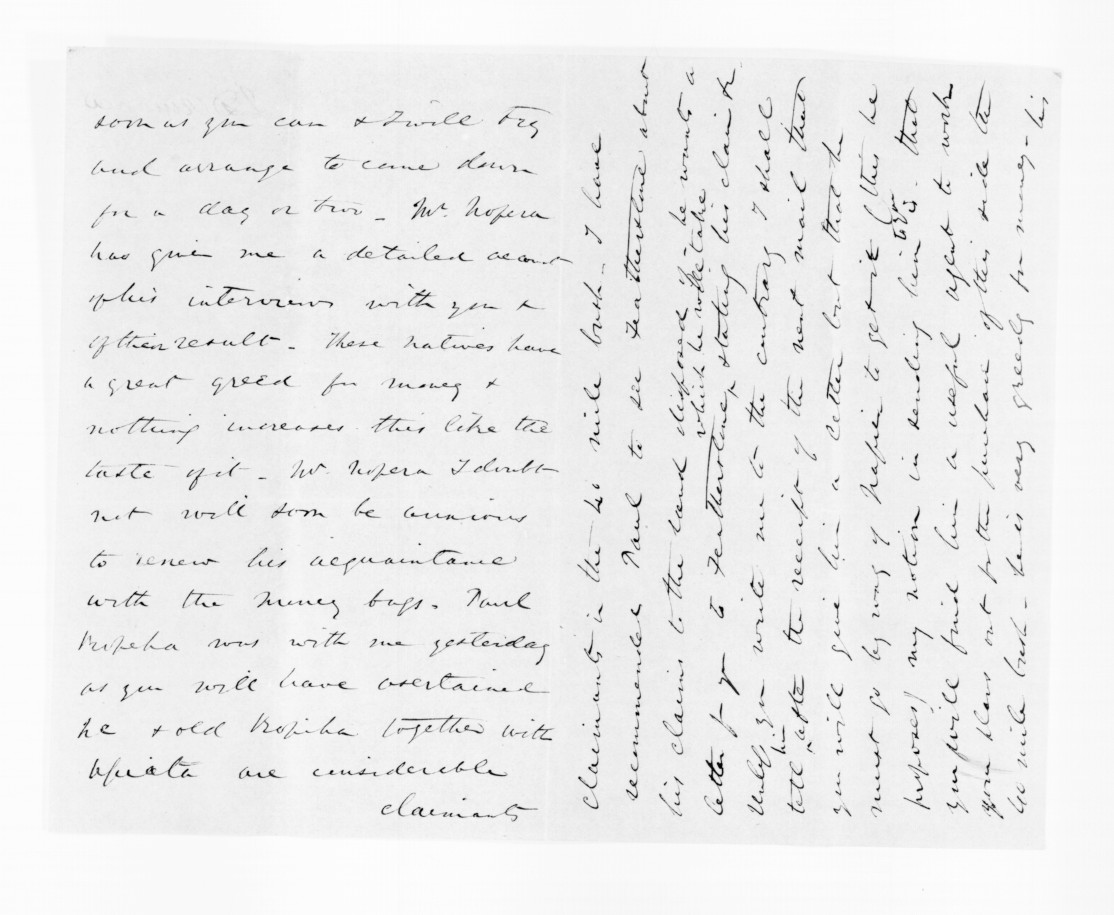 soon as you can & I will try
and arrange to come down
for a day or two - Mr. Nopera
has given me a detailed account
of his interviews with you &
of their result - These natives have
a great greed for money &
nothing increases this like the
taste of it - Mr. Nopera I doubt
not will soon be anxious
to renew his acquaintance
with the money bags. Paul
Kopeha was with me yesterday
as you will have asertained
he & old Kopiha together with
are considerable
claimants
claimants in the 40 mile bush - I have
recommended Paul to see Featherstone about
his claims to the land disposed of - he wants a
which he will take
letter fr yr to Featherstone, stating his claim &c.
Unless you write me to the contrary I shall
tell him after the receipt of the next mail that
you will give him a letter but that he
must go by way of Napier to get it (this he
proposes) my notion in sending him to you is - that
you will find him a useful agent to work
your plans out for the purchase of this side the
40 mile bush - he is very greedy for money - his